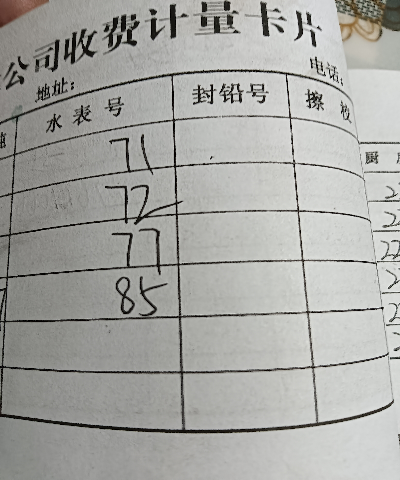 公司收费计量卡片
地址： 电话：
水表号 封铅号 擦校
71
72
77
85
厨